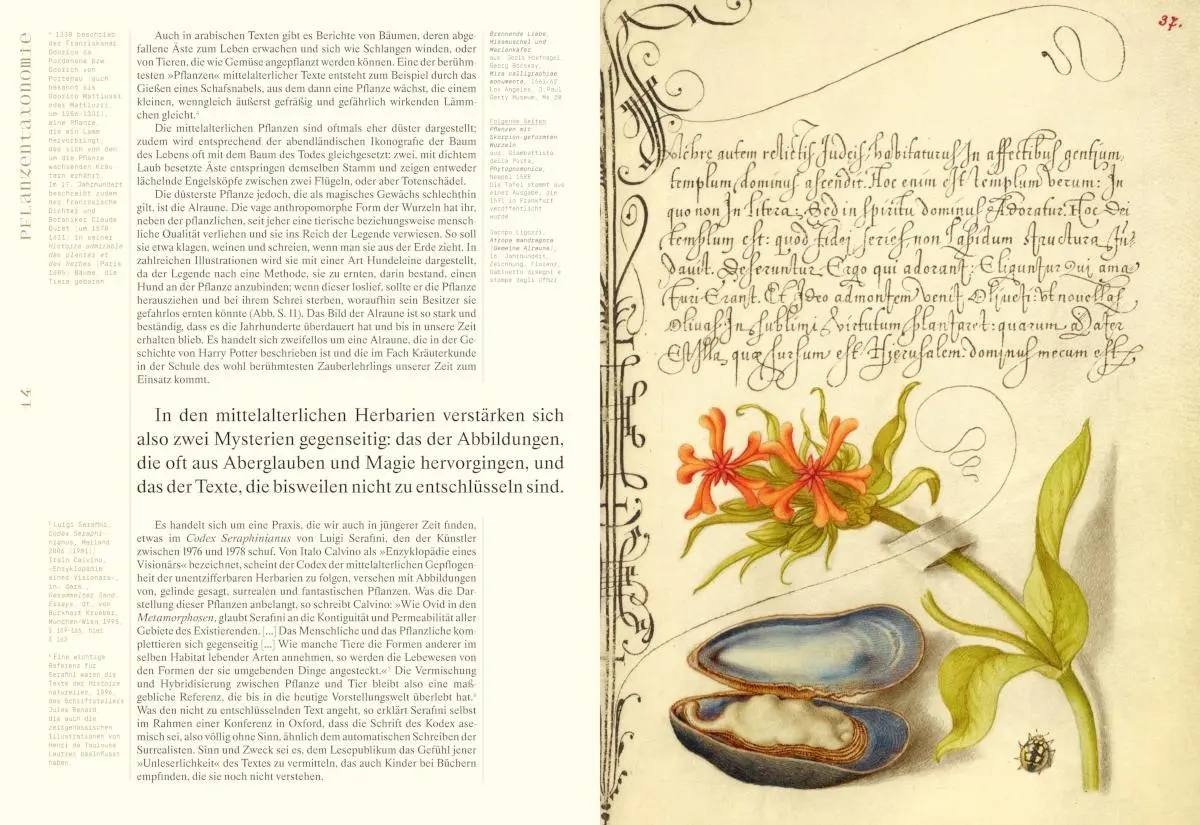 Pflanzentaxonomie
14
⁴ 1330 beschrieb
der Franziskaner
Odorico da
Pordenone bzw.
Odorich von
Portenau (auch
bekannt als
Odorico Mattiussi
oder Mattiuzzi,
um 1286-1331),
eine Pflanze,
die ein Lamm
hervorbringt,
das sich von den
um die Pflanze
wachsenden Kräu-
tern ernährt.
Im 17. Jahrhundert
beschreibt zudem
der französische
Dichter und
Botaniker Claude
Duret (um 1570-
1611) in seiner
Histoire admirable
des plantes et
des herbes (Paris
1605) Bäume, die
Tiere gebären.
Auch in arabischen Texten gibt es Berichte von Bäumen, deren abge-
fallene Äste zum Leben erwachen und sich wie Schlangen winden, oder
von Tieren, die wie Gemüse angepflanzt werden können. Eine der berühm-
testen »Pflanzen« mittelalterlicher Texte entsteht zum Beispiel durch das
Gießen eines Schafsnabels, aus dem dann eine Pflanze wächst, die einem
kleinen, wenngleich äußerst gefräßig und gefährlich wirkenden Lämm-
chen gleicht.⁴
Die mittelalterlichen Pflanzen sind oftmals eher düster dargestellt;
zudem wird entsprechend der abendländischen Ikonografie der Baum
des Lebens oft mit dem Baum des Todes gleichgesetzt: zwei, mit dichtem
Laub besetzte Äste entspringen demselben Stamm und zeigen entweder
lächelnde Engelsköpfe zwischen zwei Flügeln, oder aber Totenschädel.
Die düsterste Pflanze jedoch, die als magisches Gewächs schlechthin
gilt, ist die Alraune. Die vage anthropomorphe Form der Wurzeln hat ihr,
neben der pflanzlichen, seit jeher eine tierische beziehungsweise mensch-
liche Qualität verliehen und sie ins Reich der Legende verwiesen. So soll
sie etwa klagen, weinen und schreien, wenn man sie aus der Erde zieht. In
zahlreichen Illustrationen wird sie mit einer Art Hundeleine dargestellt,
da der Legende nach eine Methode, sie zu ernten, darin bestand, einen
Hund an der Pflanze anzubinden; wenn dieser loslief, sollte er die Pflanze
herausziehen und bei ihrem Schrei sterben, woraufhin sein Besitzer sie
gefahrlos ernten könnte (Abb. S. 11). Das Bild der Alraune ist so stark und
beständig, dass es die Jahrhunderte überdauert hat und bis in unsere Zeit
erhalten blieb. Es handelt sich zweifellos um eine Alraune, die in der Ge-
schichte von Harry Potter beschrieben ist und die im Fach Kräuterkunde
in der Schule des wohl berühmtesten Zauberlehrlings unserer Zeit zum
Einsatz kommt.
Brennende Liebe,
Miesmuschel und
Marienkäfer
aus: Joris Hoefnagel,
Georg Bocskay,
Mira calligraphiae
monumenta, 1561/62
Los Angeles, J. Paul
Getty Museum, Ms 20
Folgende Seiten
Pflanzen mit
Skorpion-geformten
Wurzeln
aus: Giambattista
della Porta,
Phytognomonica,
Neapel 1588
Die Tafel stammt aus
einer Ausgabe, die
1591 in Frankfurt
veröffentlicht
wurde
Jacopo Ligozzi,
Atropa mandragora
(Gemeine Alraune),
16. Jahrhundert,
Zeichnung, Florenz,
Gabinetto disegni e
stampe degli Uffizi
In den mittelalterlichen Herbarien verstärken sich
also zwei Mysterien gegenseitig: das der Abbildungen,
die oft aus Aberglauben und Magie hervorgingen, und
das der Texte, die bisweilen nicht zu entschlüsseln sind.
⁵ Luigi Serafini,
Codex Seraphi-
nianus, Mailand
2006 (1981);
Italo Calvino,
»Enzyklopädie
eines Visionärs«,
in: ders.,
Gesammelter Sand.
Essays, dt. von
Burkhart Kroeber,
München/Wien 1995,
S. 159-165, hier
S. 162
⁶ Eine wichtige
Referenz für
Serafini waren die
Texte der Histoire
naturelles, 1896,
des Schriftstellers
Jules Renard,
die auch die
zeitgenössischen
Illustrationen von
Henri de Toulouse
Lautrec beeinflusst
haben.
Es handelt sich um eine Praxis, die wir auch in jüngerer Zeit finden,
etwas im Codex Seraphinianus von Luigi Serafini, den der Künstler
zwischen 1976 und 1978 schuf. Von Italo Calvino als »Enzyklopädie eines
Visionärs« bezeichnet, scheint der Codex der mittelalterlichen Gepflogen-
heit der unentzifferbaren Herbarien zu folgen, versehen mit Abbildungen
von, gelinde gesagt, surrealen und fantastischen Pflanzen. Was die Dar-
stellung dieser Pflanzen anbelangt, so schreibt Calvino: »Wie Ovid in den
Metamorphosen, glaubt Serafini an die Kontiguität und Permeabilität aller
Gebiete des Existierenden. [...] Das Menschliche und das Pflanzliche kom-
plettieren sich gegenseitig [...] Wie manche Tiere die Formen anderer im
selben Habitat lebender Arten annehmen, so werden die Lebewesen von
den Formen der sie umgebenden Dinge angesteckt.«⁵ Die Vermischung
und Hybridisierung zwischen Pflanze und Tier bleibt also eine maß-
gebliche Referenz, die bis in die heutige Vorstellungswelt überlebt hat.⁶
Was den nicht zu entschlüsselnden Text angeht, so erklärt Serafini selbst
im Rahmen einer Konferenz in Oxford, dass die Schrift des Kodex ase-
misch sei, also völlig ohne Sinn, ähnlich dem automatischen Schreiben der
Surrealisten. Sinn und Zweck sei es, dem Lesepublikum das Gefühl jener
»Unleserlichkeit« des Textes zu vermitteln, das auch Kinder bei Büchern
empfinden, die sie noch nicht verstehen.
37.
autem relictis Judeis, habitaturus In affectibus gentium,
templum dominus ascendit. Hoc enim est templum verum: In
quo non In litera: Sed in spiritu dominus Adoratur. Hoc Dei
templum est: quod fidei series, non lapidum structura fun
davit. Deseruntur Ergo qui adorant: Eliguntur qui ama
turi Erant. Et Ideo ad montem venit Oliueti: vt nouellas
Oliuas In sublimi virtutum plantaret: quarum Mater
Est Illa, quæ sursum est Hierusalem: dominus mecum est